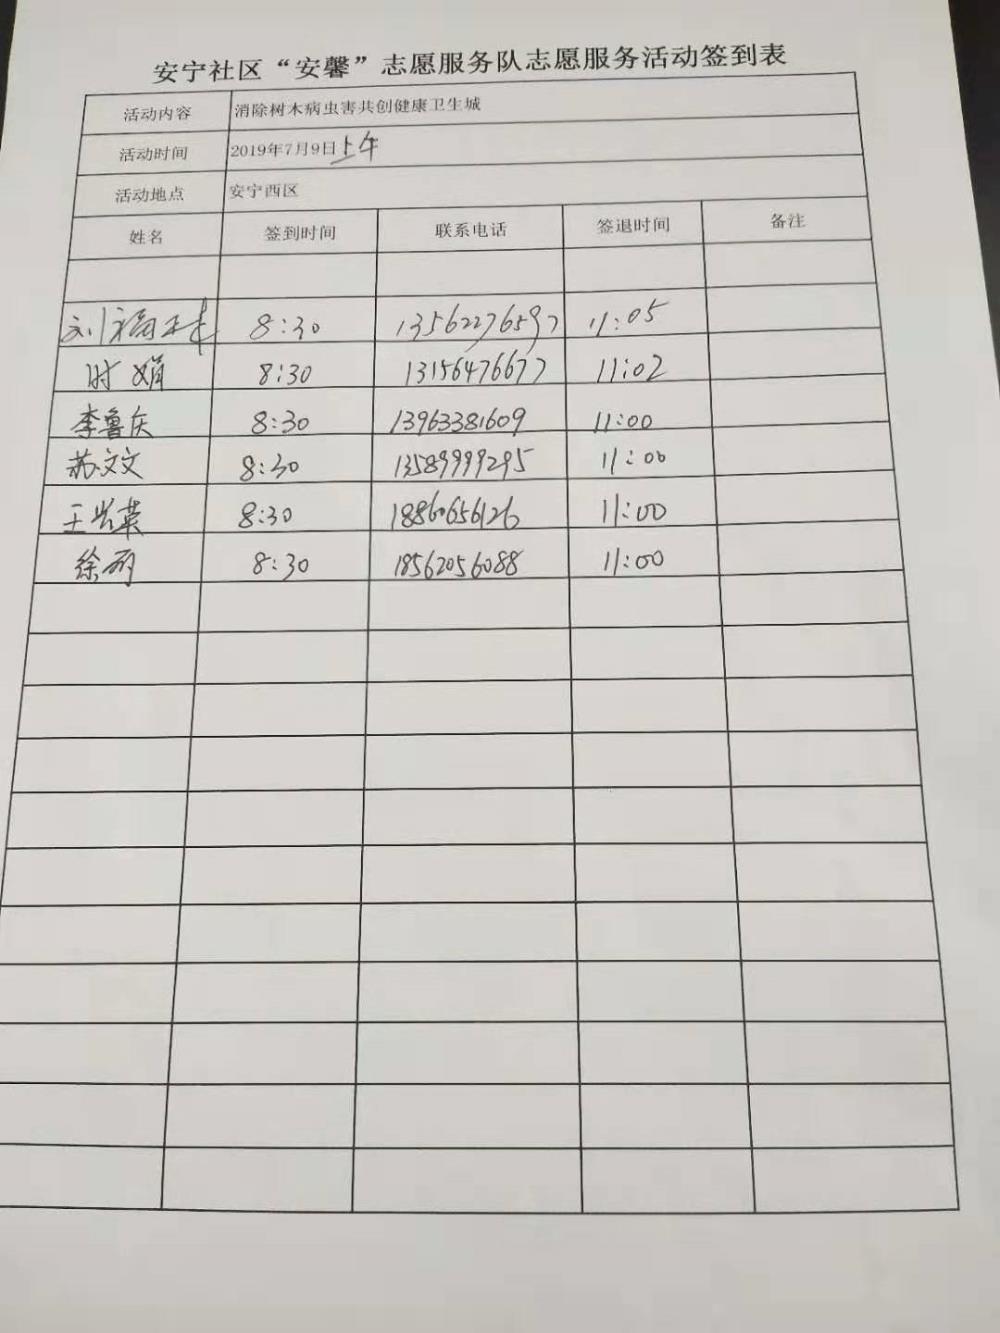 安宁社区“安馨”志愿服务队志愿服务活动签到表
活动内容 消除树木病虫害共创健康卫生城
活动时间 2019年7月9日上午
活动地点 安宁西区
姓名 签到时间 联系电话 签退时间 备注
刘福 8:30 13562276597 11:05
时娟 8:30 13156476677 11:02
李鲁庆 8:30 13963381609 11:00
苏文文 8:30 13589999295 11:00
王兴英 8:30 18860656126 11:00
徐丽 8:30 18562056088 11:00